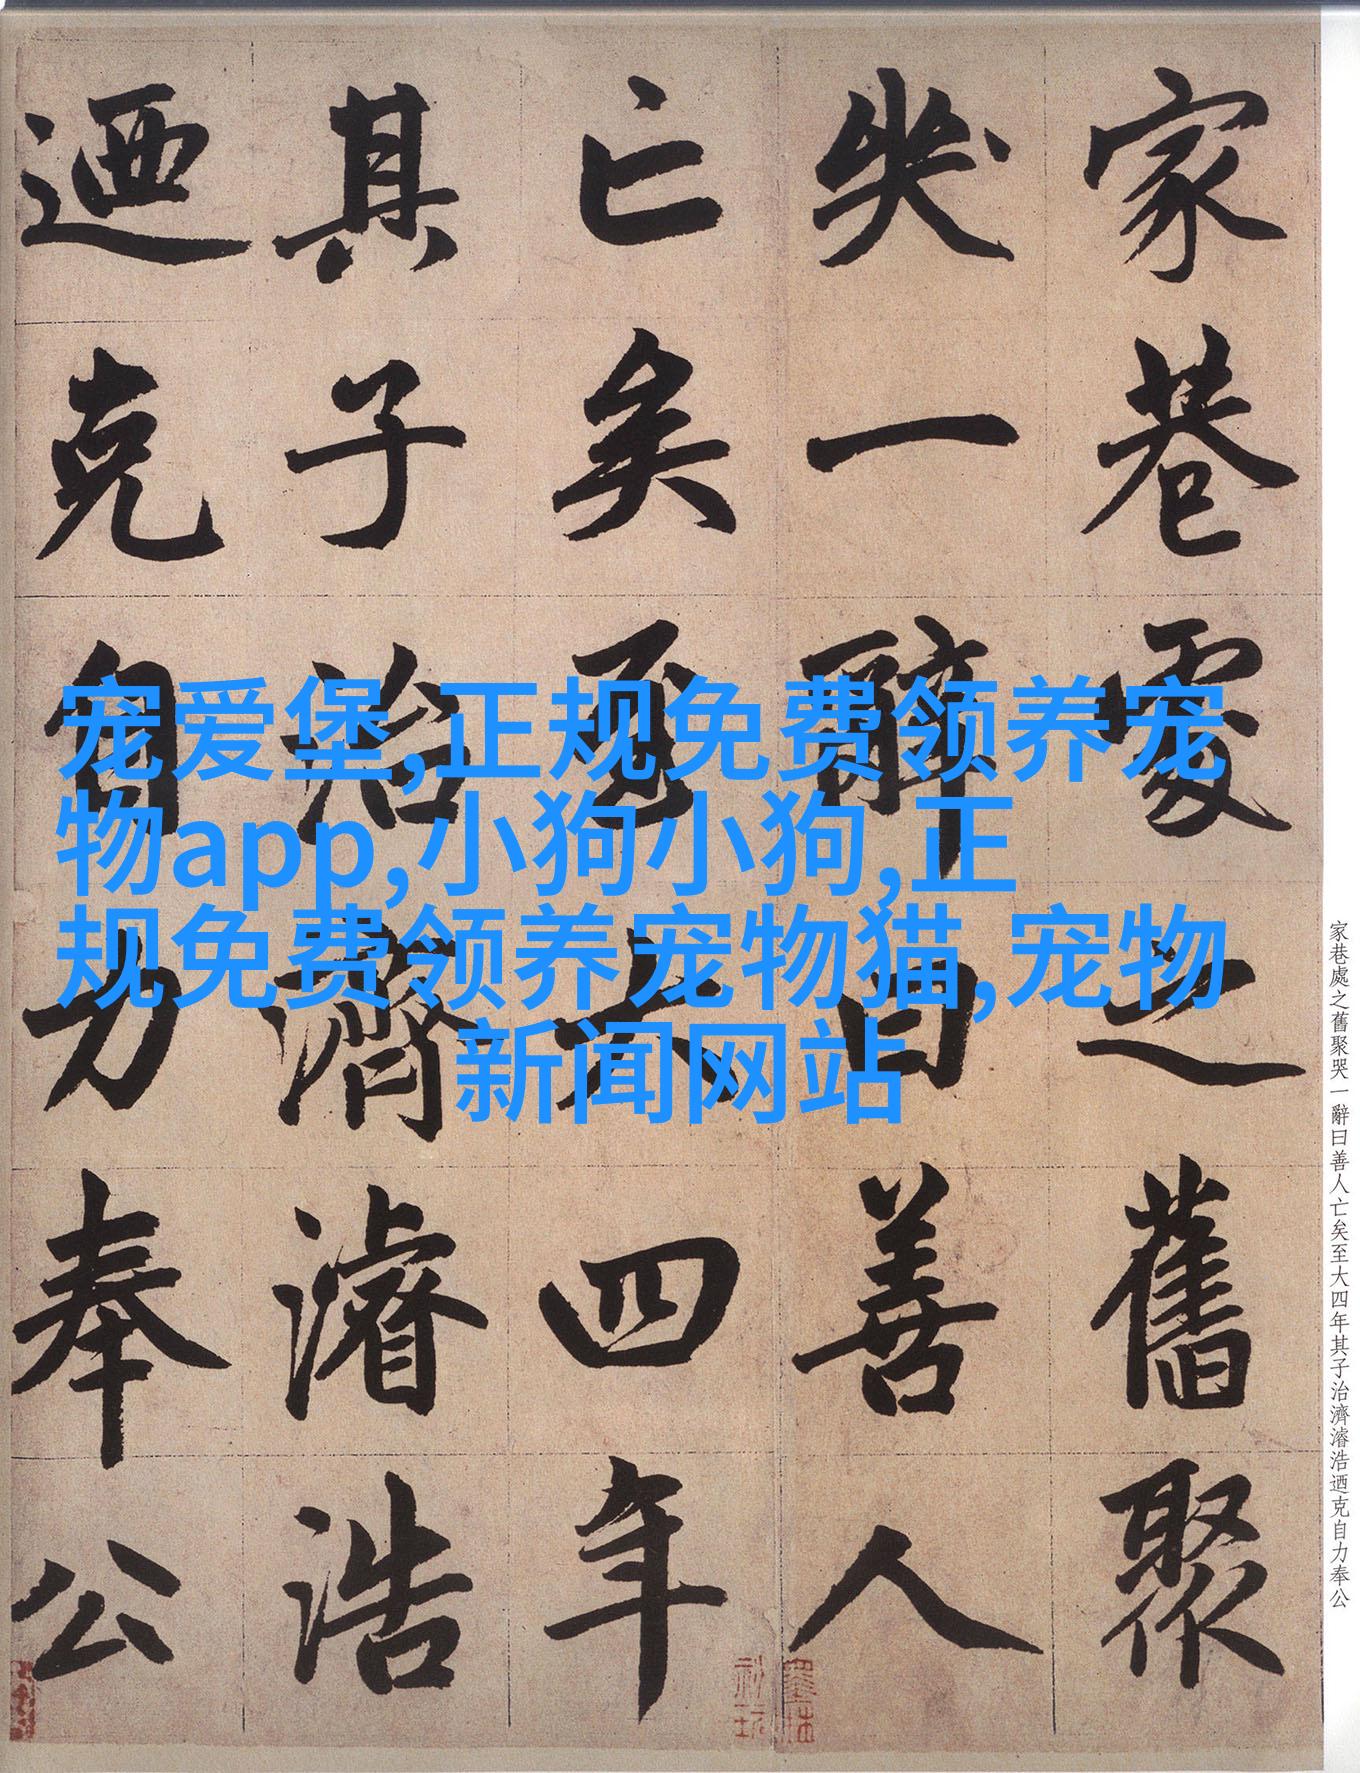 家巷處之舊聚
哭一辭曰善人
亡矣至大四年
其子治濟濬浩
迺克自力奉公
宠爱堡,正规免费领养宠
物app,小狗小狗,正
规免费领养宠物猫,宠物
新闻网站
家巷處之舊聚哭一辭曰善人亡矣至大四年其子治濟濬浩迺克自力奉公